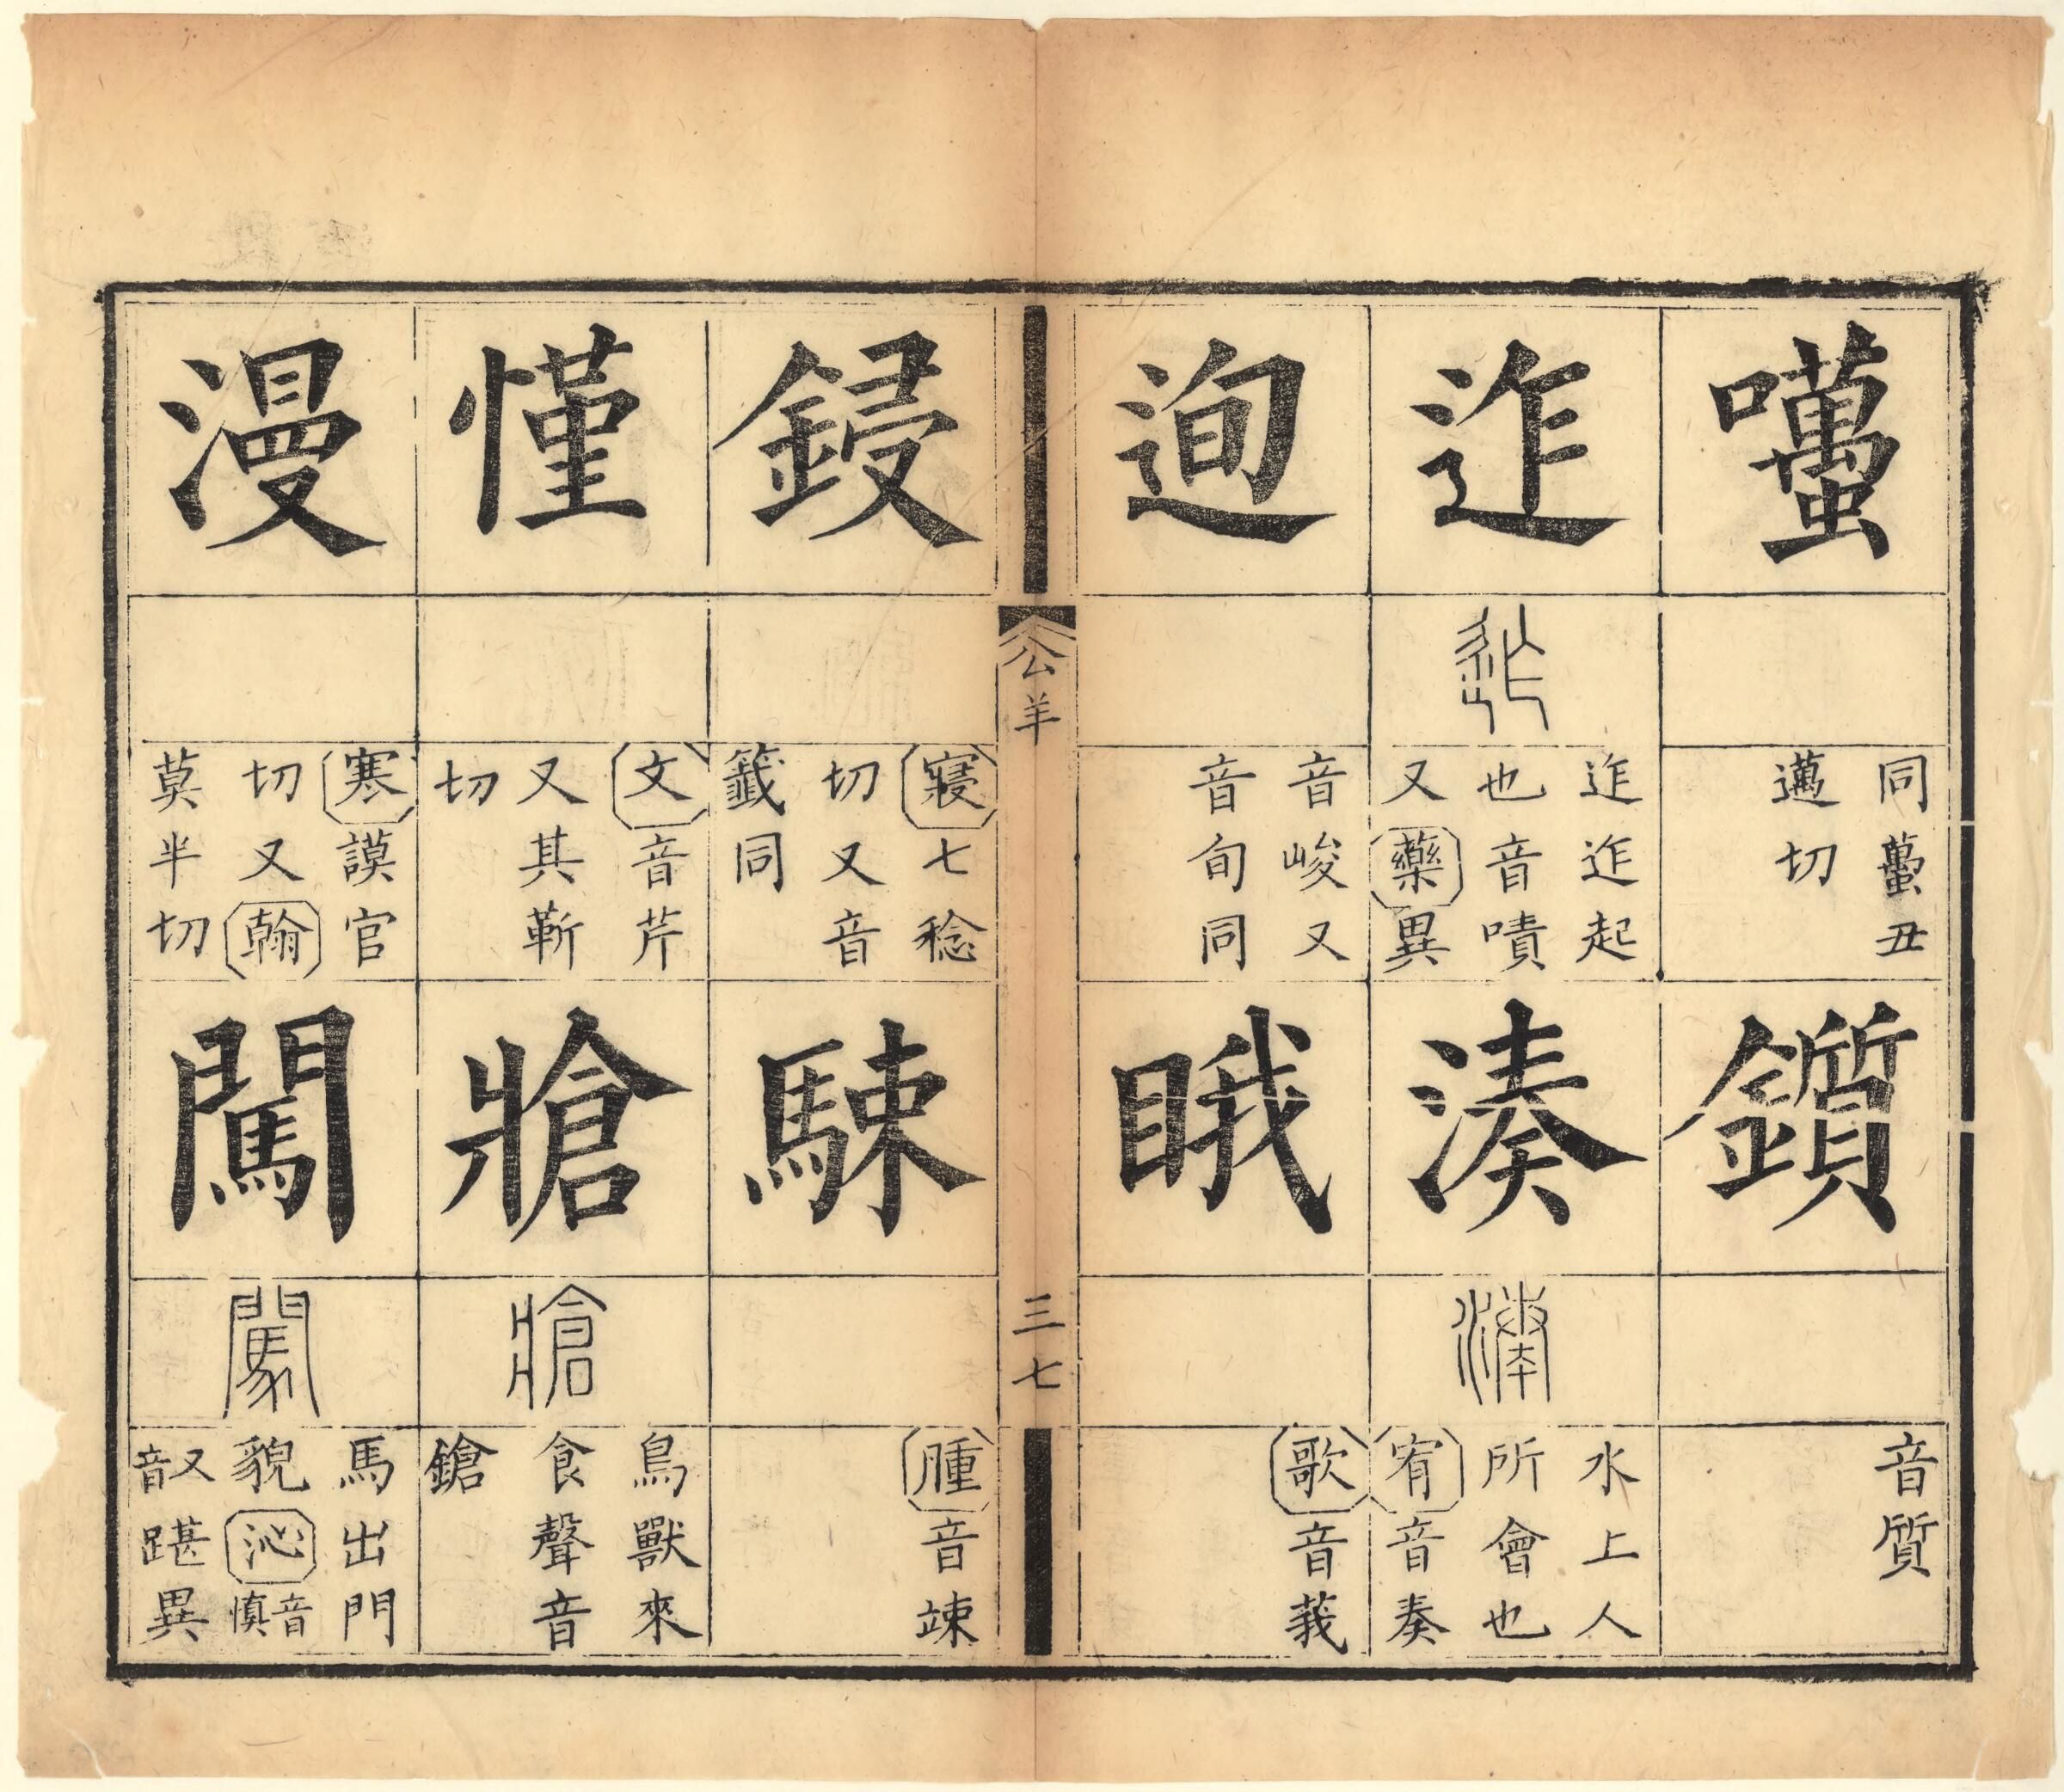 囆
同蠆丑
邁切
鑕
音質
迮
迮
迮迮起
也音嘖
又藥異
湊
湊
水上人
所會也
宥音奏
迿
音峻又
音旬同
睋
歌音莪
公羊
三七
鋟
寢七稔
切又音
籤同
駷
腫音竦
慬
文音芹
又其靳
切
牄
牄
鳥獸來
食聲音
鎗
漫
寒謨官
切又翰
莫半切
闖
闖
馬出門
貌沁音慎
又音踸異